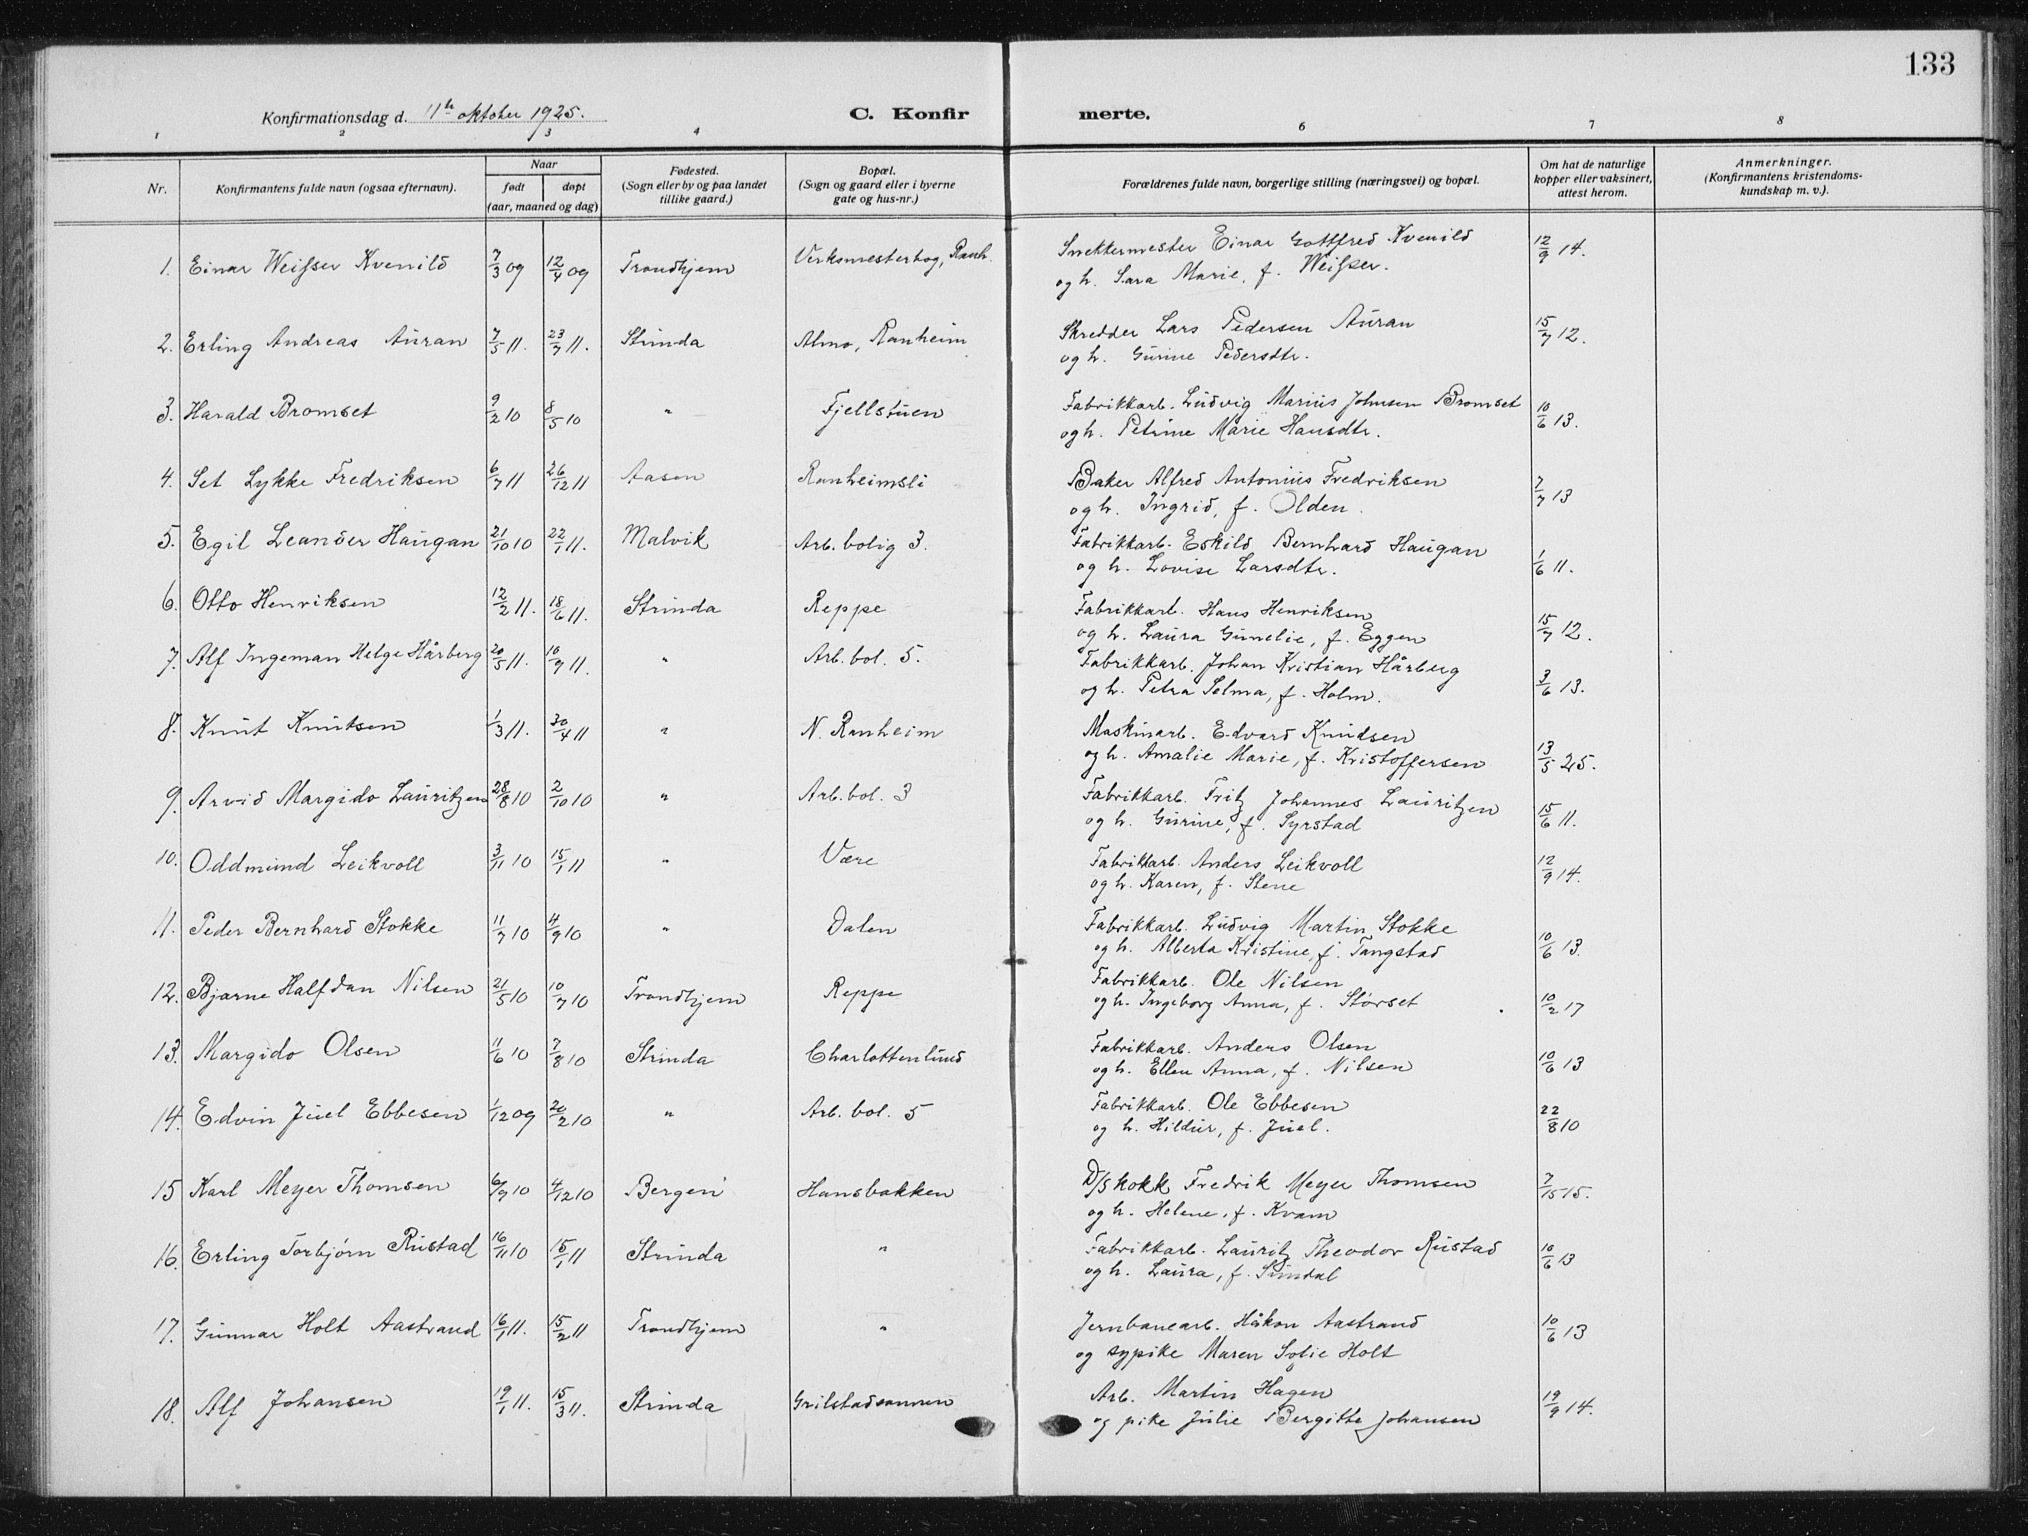 133
Konfirmationsdag d. 11te oktober 1925. C. Konfir merte.
1 2 3 4 6 7 8
Nr. Konfirmantens fulde navn (ogsaa efternavn). Naar født døpt (aar, maaned og dag) Fødested. (Sogn eller by og paa landet tillike gaard.) Bopæl. (Sogn og gaard eller i byerne gate og hus-nr.) Forældrenes fulde navn, borgerlige stilling (næringsvei) og bopæl. Om hat de naturlige kopper eller vaksinert, attest herom. Anmerkninger. (Konfirmantens kristendoms-kundskap m. v.).
1. Einar Weisser Kvenild 7/3 09 12/4 09 Trondhjem Verksmesterbog, Ranh. Snekkermester Einar Gottfred Kvenild 12/9 14.
og h. Sara Marie, f. Weisser.
2. Erling Andreas Auran 7/5 11. 23/7 11. Strinda Almo, Ranheim Skredder Lars Pedersen Auran 15/7 12.
og h. Gurine Pedersdtr.
3. Harald Bromset 9/2 10 8/5 10 " Fjellstuen Fabrikkarb. Ludvig Marius Johnsen Bromset 10/6 13.
og h. Petrine Marie Hansdtr.
4. Set Lykke Fredriksen 6/7 11 26/12 11 Aasen Ranheimsli Baker Alfred Antonius Fredriksen 7/7 13
og h. Ingrid, f. Olden.
5. Egil Leander Haugan 21/10 10 22/1 11. Malvik Arb. bolig 3. Fabrikkarb. Eskild Bernhard Haugan 1/6 11.
og h. Lovise Larsdtr.
6. Otto Henriksen 12/2 11. 18/6 11. Strinda Reppe Fabrikkarb. Hans Henriksen 15/7 12.
og h. Laura Gunelie, f. Eggen
7. Alf Ingeman Helge Hårberg 20/5 11. 10/9 11. " Arb. bol. 5. Fabrikkarb. Johan Kristian Hårberg 3/6 13.
og h. Petra Selma, f. Holm.
8. Knut Knutsen 1/3 11. 30/4 11 " N. Ranheim Maskinarb. Edvard Knudsen 13/5 25.
og h. Amalie Marie, f. Kristoffersen
9. Arvid Margido Lauritzen 28/8 10 2/10 10 " Arb. bol. 3 Fabrikkarb. Fritz Johannes Lauritzen 15/6 11.
og h. Gurine, f. Syrstad
10. Oddmund Leikvoll 3/11 10 15/1 11 " Være Fabrikkarb. Anders Leikvoll 12/9 14.
og h. Karen, f. Stene
11. Peder Bernhard Stokke 11/7 10 4/9 10 " Dalen Fabrikkarb. Ludvig Martin Stokke 10/6 13.
og h. Alberta Kristine, f. Tangstad
12. Bjarne Halfdan Nilsen 21/5 10 10/7 10 Trondhjem Reppe Fabrikkarb. Ole Nilsen 10/2 17
og h. Ingeborg Anna, f. Størset
13. Margido Olsen 11/6 10 7/8 10 Strinda Charlottenlund Fabrikkarb. Anders Olsen 10/6 13
og h. Ellen Anna, f. Nilsen
14. Edvin Juel Ebbesen 1/12 09 20/2 10 " Arb. bol. 5 Fabrikkarb. Ole Ebbesen 22/8 10
og h. Hildur, f. Juel.
15 Karl Meyer Thomsen 6/9 10 4/12 10 Bergen Hansbakken D/Skokk Fredrik Meyer Thomsen 7/15 15.
og h. Helene, f. Kvam
16. Erling Torbjørn Rustad 16/11 10 15/1 11 Strinda " Fabrikkarb. Lauritz Theodor Rustad 10/6 13
og h. Laura, f. Sundal
17. Gunnar Holt Aastrand 16/1 11. 15/2 11 Trondhjem " Jernbanearb. Håkon Aastrand 10/6 13
og sypike Maren Sofie Holt
18. Alf Johansen 19/1 11. 15/3 11. Strinda Grilstadsannen Arb. Martin Hagen 19/9 14.
og pike Julie Bergitte Johansen